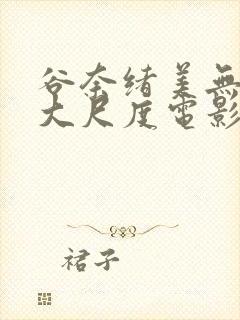 谷奈绪美無
大尺度電影
裙子